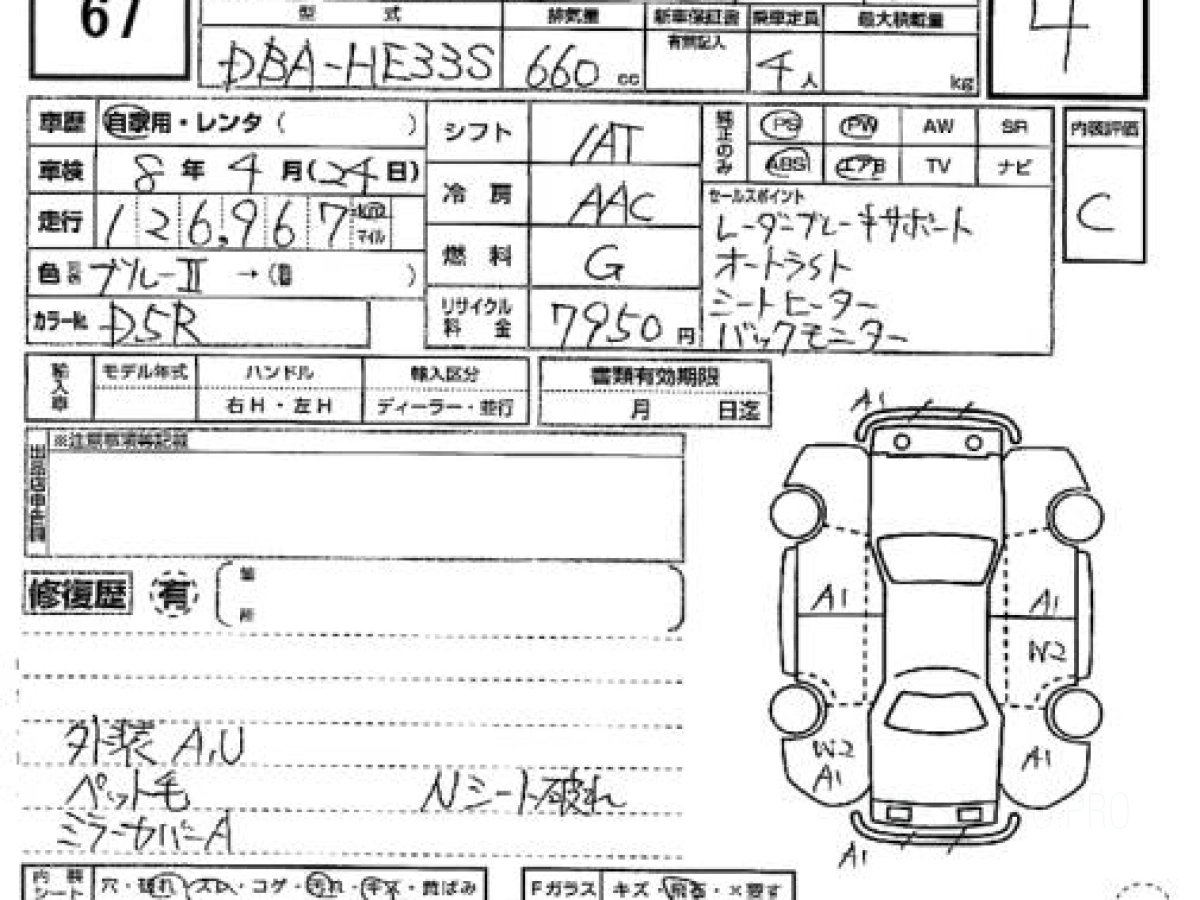 67
型 式 排気量 新車保証書 乗車定員 最大積載量
有無記入
DBA-HE33S 660 cc 4人 kg
4
車歴 自家用・レンタ ( )
車検 8年 4月(24日)
走行 126,967 km マイル
色 ブルーII →( )
カラーNo. D5R
シフト IAT
冷房 AAC
燃料 G
リサイクル料金 7950円
純正のみ PS PW AW SR
ABS エアB TV ナビ
内装評価
C
セールスポイント
レーダーブレーキサポート
オートライト
シートヒーター
バックモニター
輸入車 モデル年式 ハンドル 輸入区分 書類有効期限
右H・左H ディーラー・並行 月 日迄
※注意事項等記載
出品店申告
修復歴 有
外装 A,U
ペット毛 Nシート破れ
ミラーカバーA
A1
A1 A1
W2
W2 A1
A1
A1
内装シート 穴・破れ・スレ・コゲ・汚れ・キズ・黄ばみ
Fガラス キズ・飛石・×要す